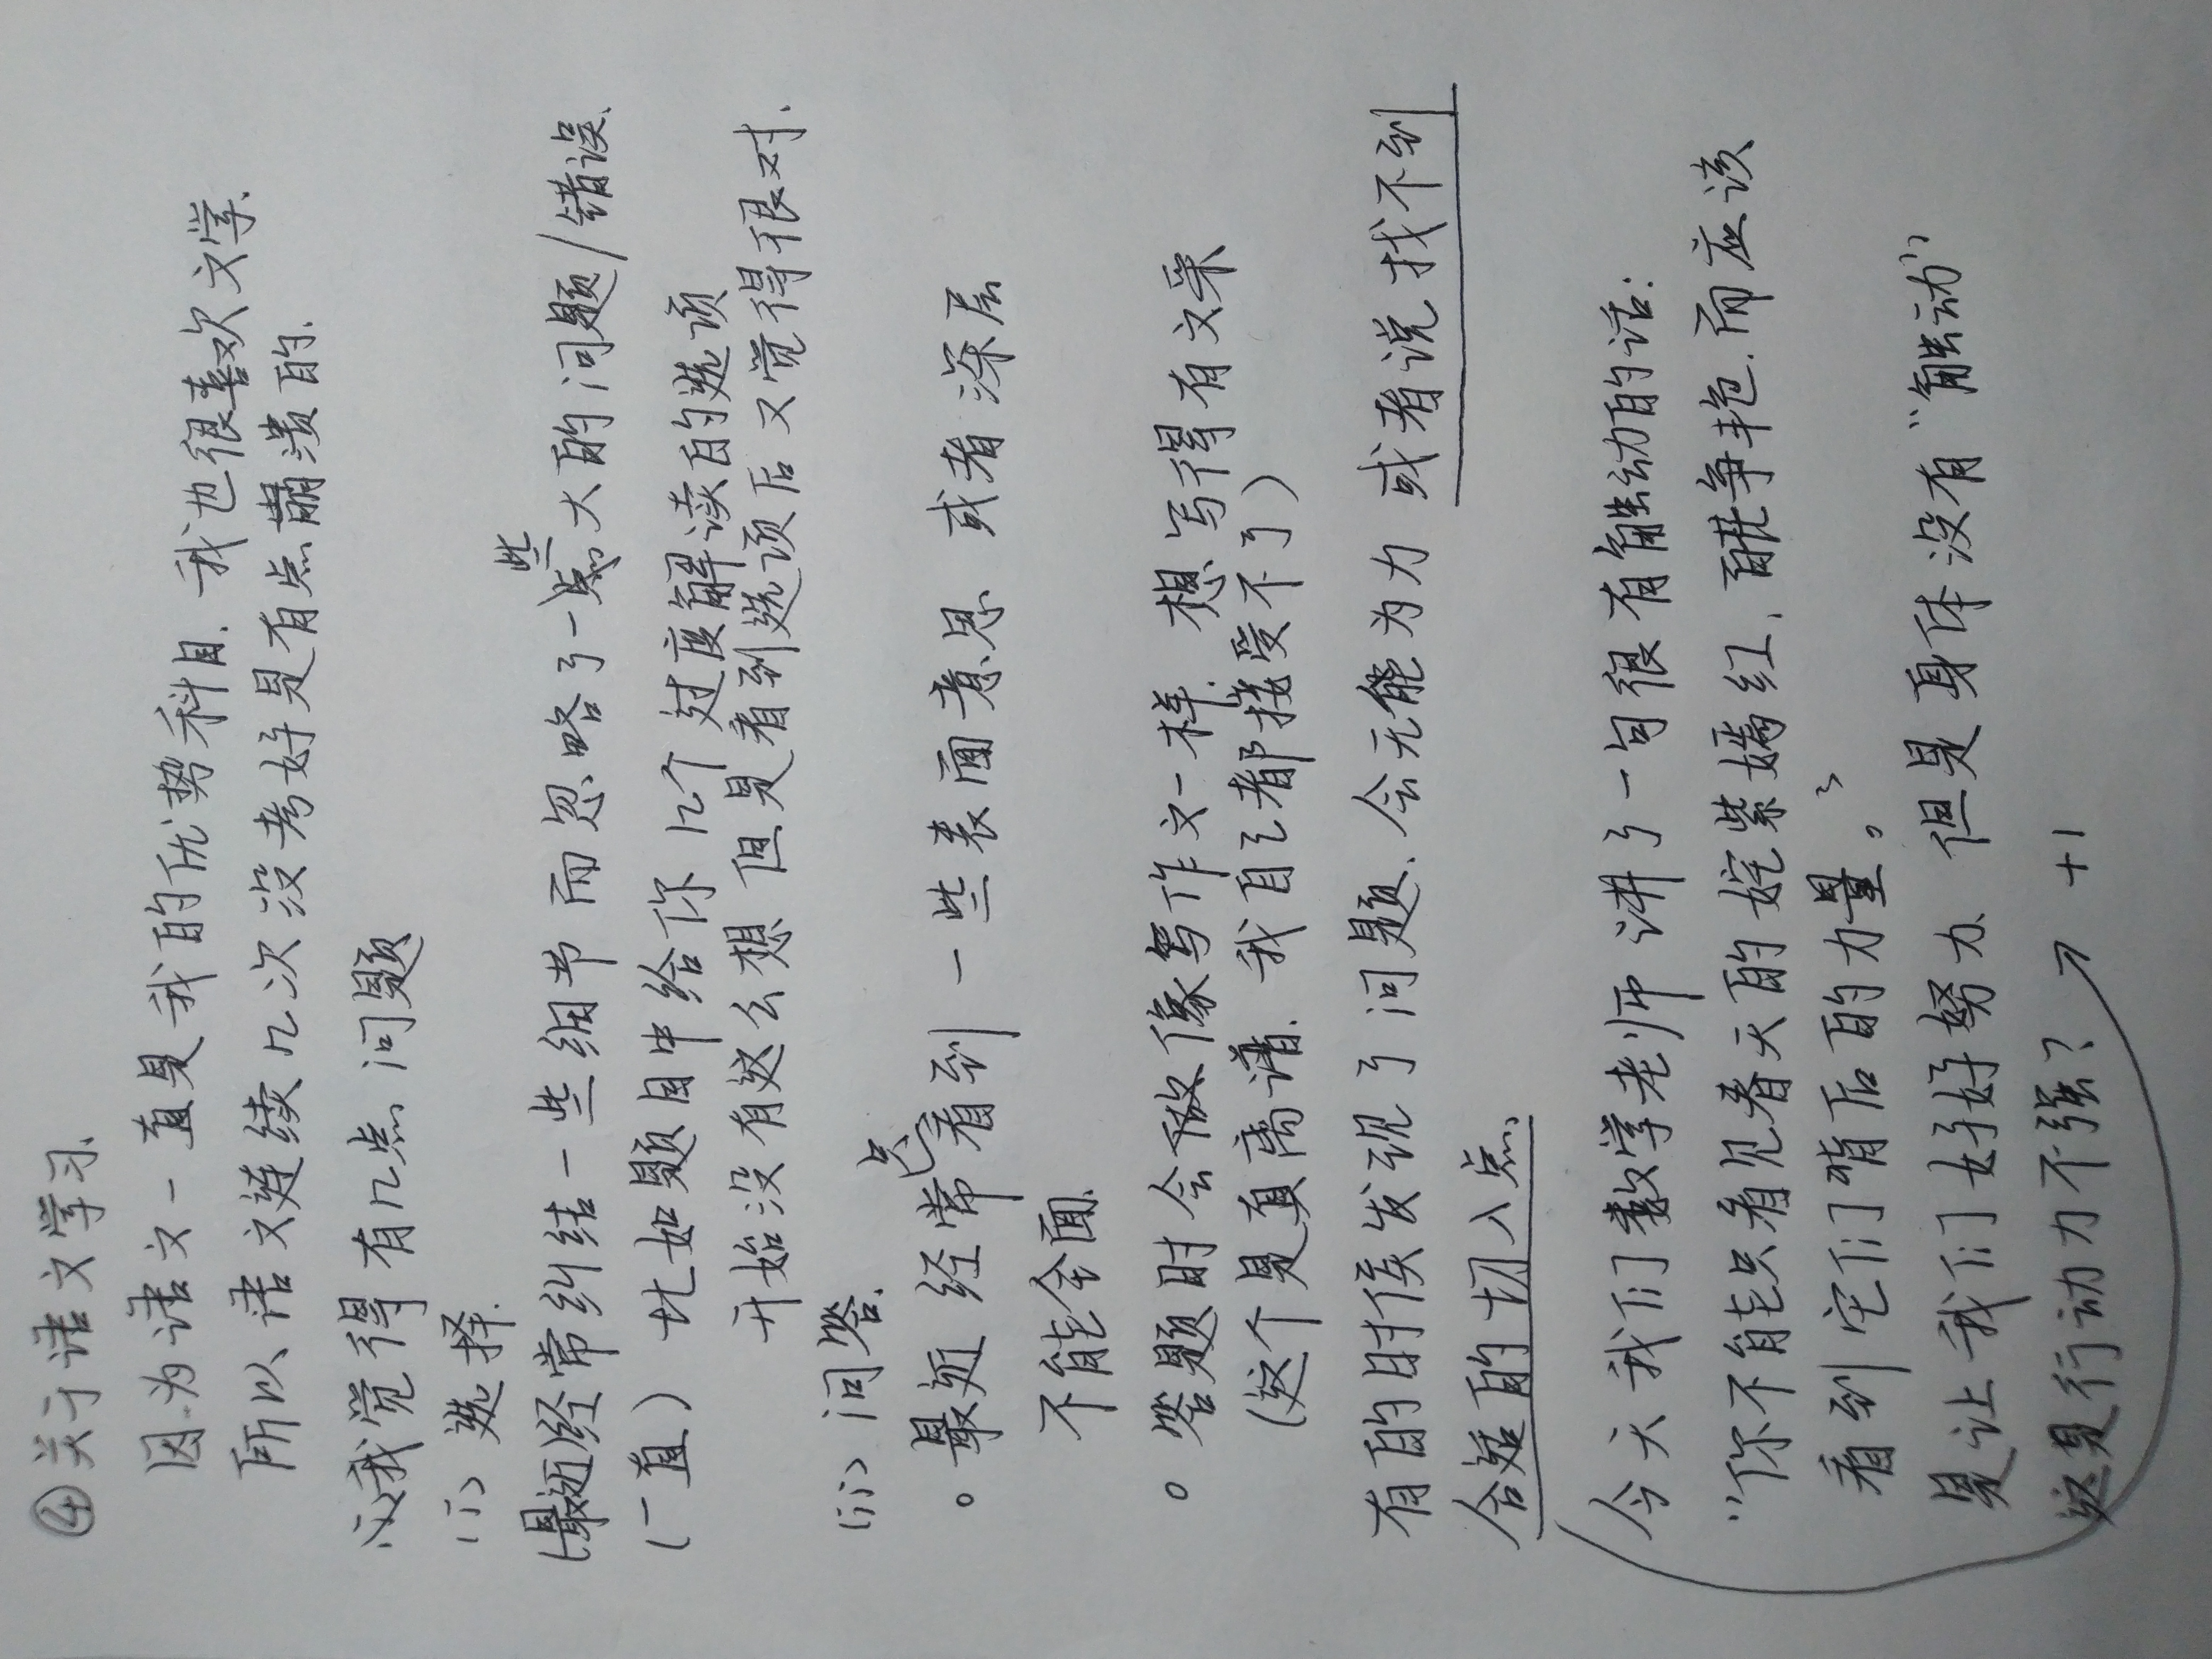 ④关于语文学习.
因为语文一直是我的优势科目.我也很喜欢文学.
所以语文连续几次没考好是有点崩溃的.
我觉得有几点问题
(i) 选择.
(最近)经常纠结一些细节而忽略了一些大的问题/错误.
(一直) 比如题目中给你几个过度解读的选项
开始没有这么想 但是看到选项后又觉得很对.
(ii) 问答.
○ 最近 经常只看到一些表面意思 或者深层
不能全面.
○ 答题时会做像写作文一样. 想写得有文采
(这个是真离谱. 我自己都接受不了)
有的时候发现了问题.会无能为力 或者说找不到
合适的切入点.
今天我们数学老师讲了一句很有触动的话:
“你不能只看见春天的姹紫嫣红,百花争艳.而应该
看到它们背后的力量。”
是让我们好好努力. 但是身体没有“触动”
这是行动力不强? → +1